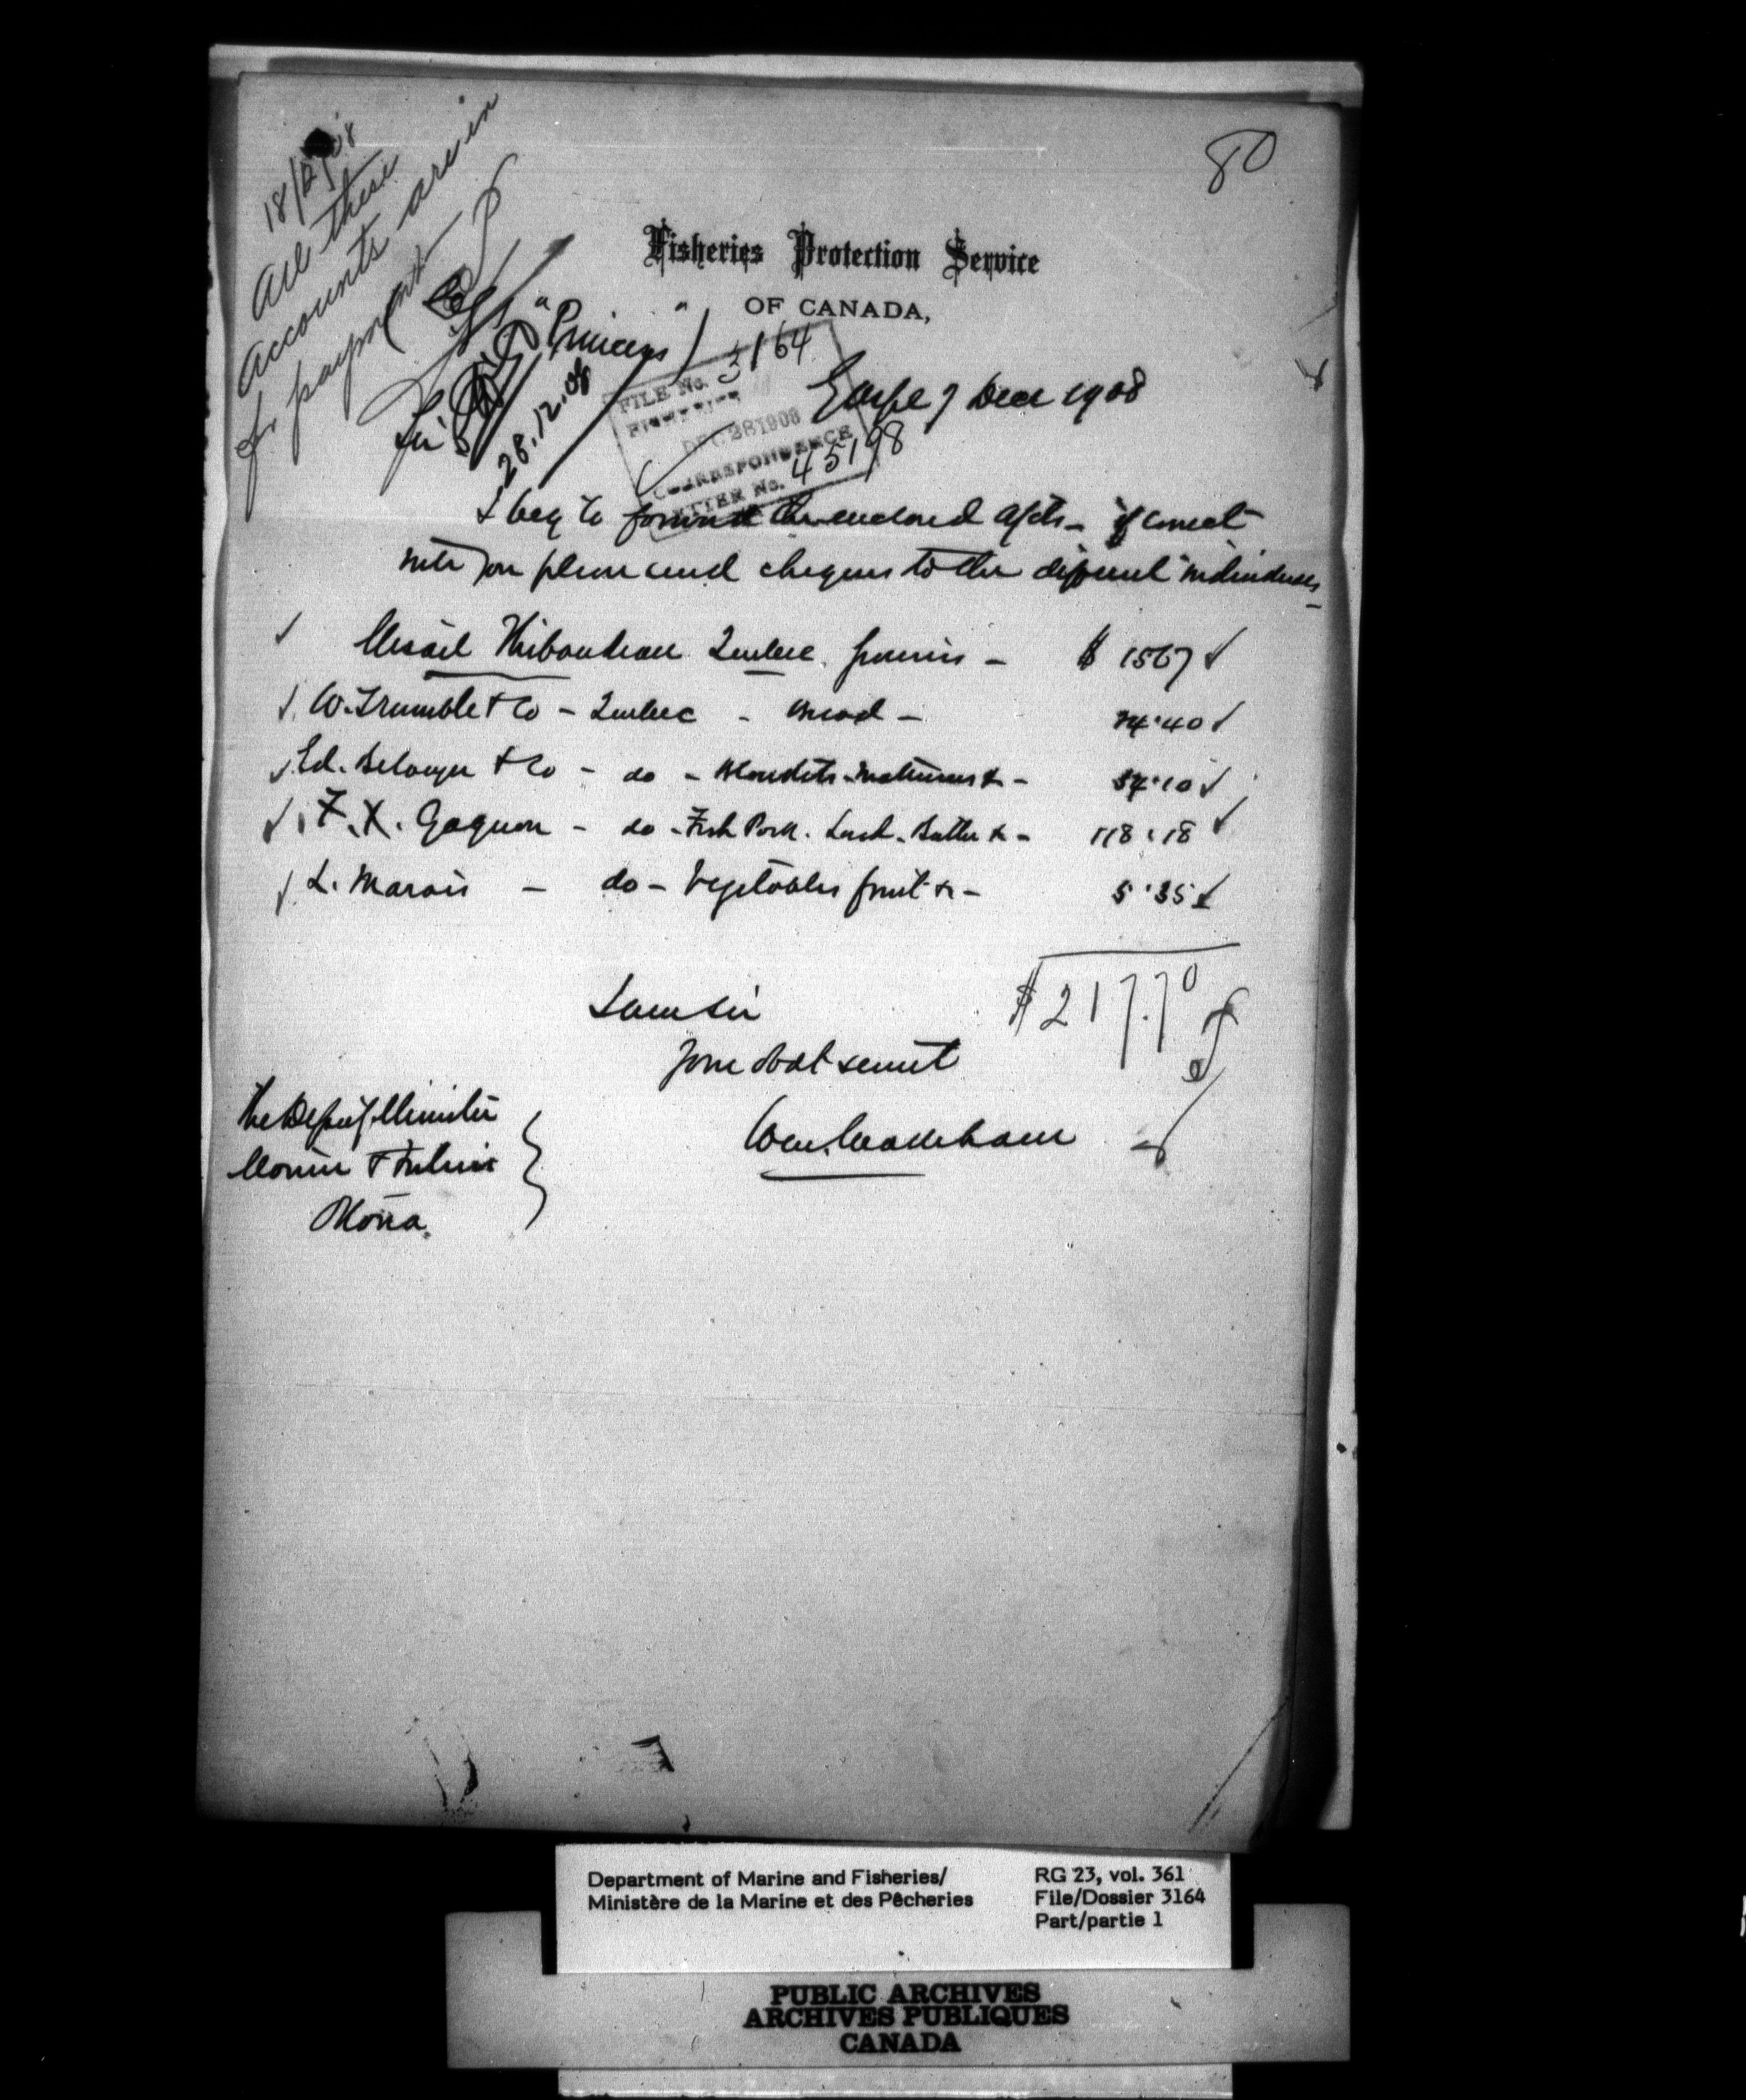 80
18/12/08
All these
accounts are in
for payment
Fisheries Protection Service
OF CANADA,
CGS "Princess"
28.12.08
FILE No. 3164
FISHERIES
DEC 28 1908
CORRESPONDENCE
LETTER No. 45198
Gaspe 7 Dec 1908
Sir
I beg to forward the enclosed a/cts - if correct
will you please send cheques to the different individuals
Thibaudeau Quebec groceries - $ 1567
W. Trumble & Co - Quebec - Bread - 24.40
Ed. Belanger & Co - do - Blankets mattresses &c - 54.10
F. X. Gagnon - do - Fish Pork. Lard. Butter &c - 118.18
L. Marois - do - Vegetables fruit &c - 5.35
$217.70
I am Sir
Your obdt servant
Wm. Wakeham
The Deputy Minister
Marine & Fisheries
Ottawa
Department of Marine and Fisheries/
Ministère de la Marine et des Pêcheries
RG 23, vol. 361
File/Dossier 3164
Part/partie 1
PUBLIC ARCHIVES
ARCHIVES PUBLIQUES
CANADA